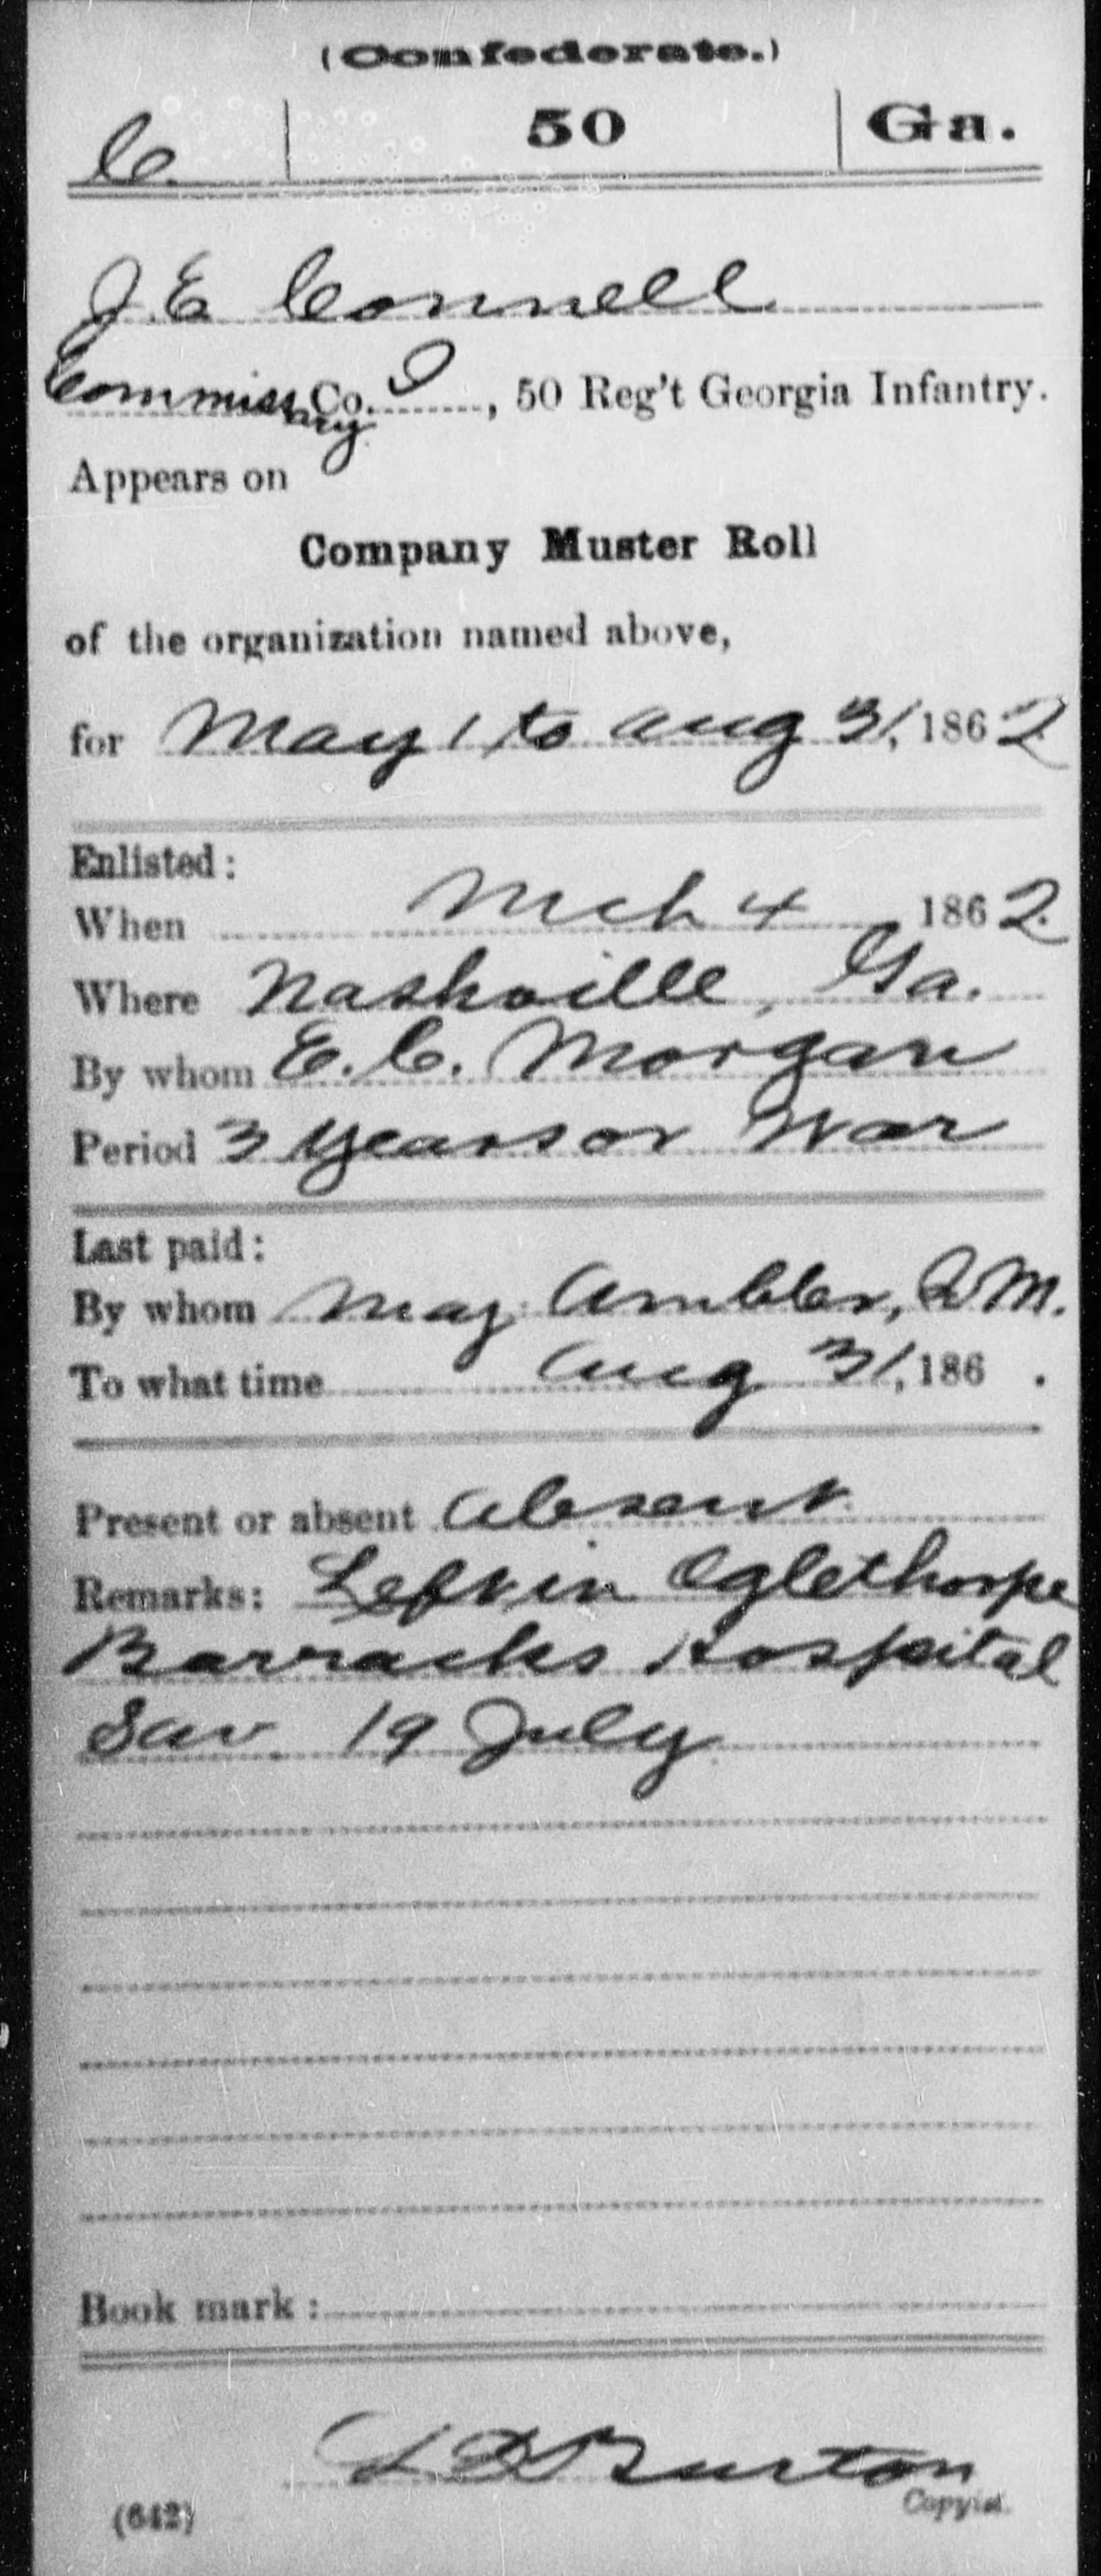 (Confederate.)
C. 50 Ga.
J. E. Connell
Commissary Co. I, 50 Reg't Georgia Infantry.
Appears on
Company Muster Roll
of the organization named above,
for May 1 to Aug 31, 1862
Enlisted:
When Mch 4 1862.
Where Nashville, Ga.
By whom E. C. Morgan
Period 3 years or War
Last paid:
By whom Maj. Ambler, QM.
To what time Aug 31, 186 .
Present or absent Absent.
Remarks: Left in Oglethorpe
Barracks Hospital
Sav. 19 July
Book mark:
Burton
(642) Copyist.